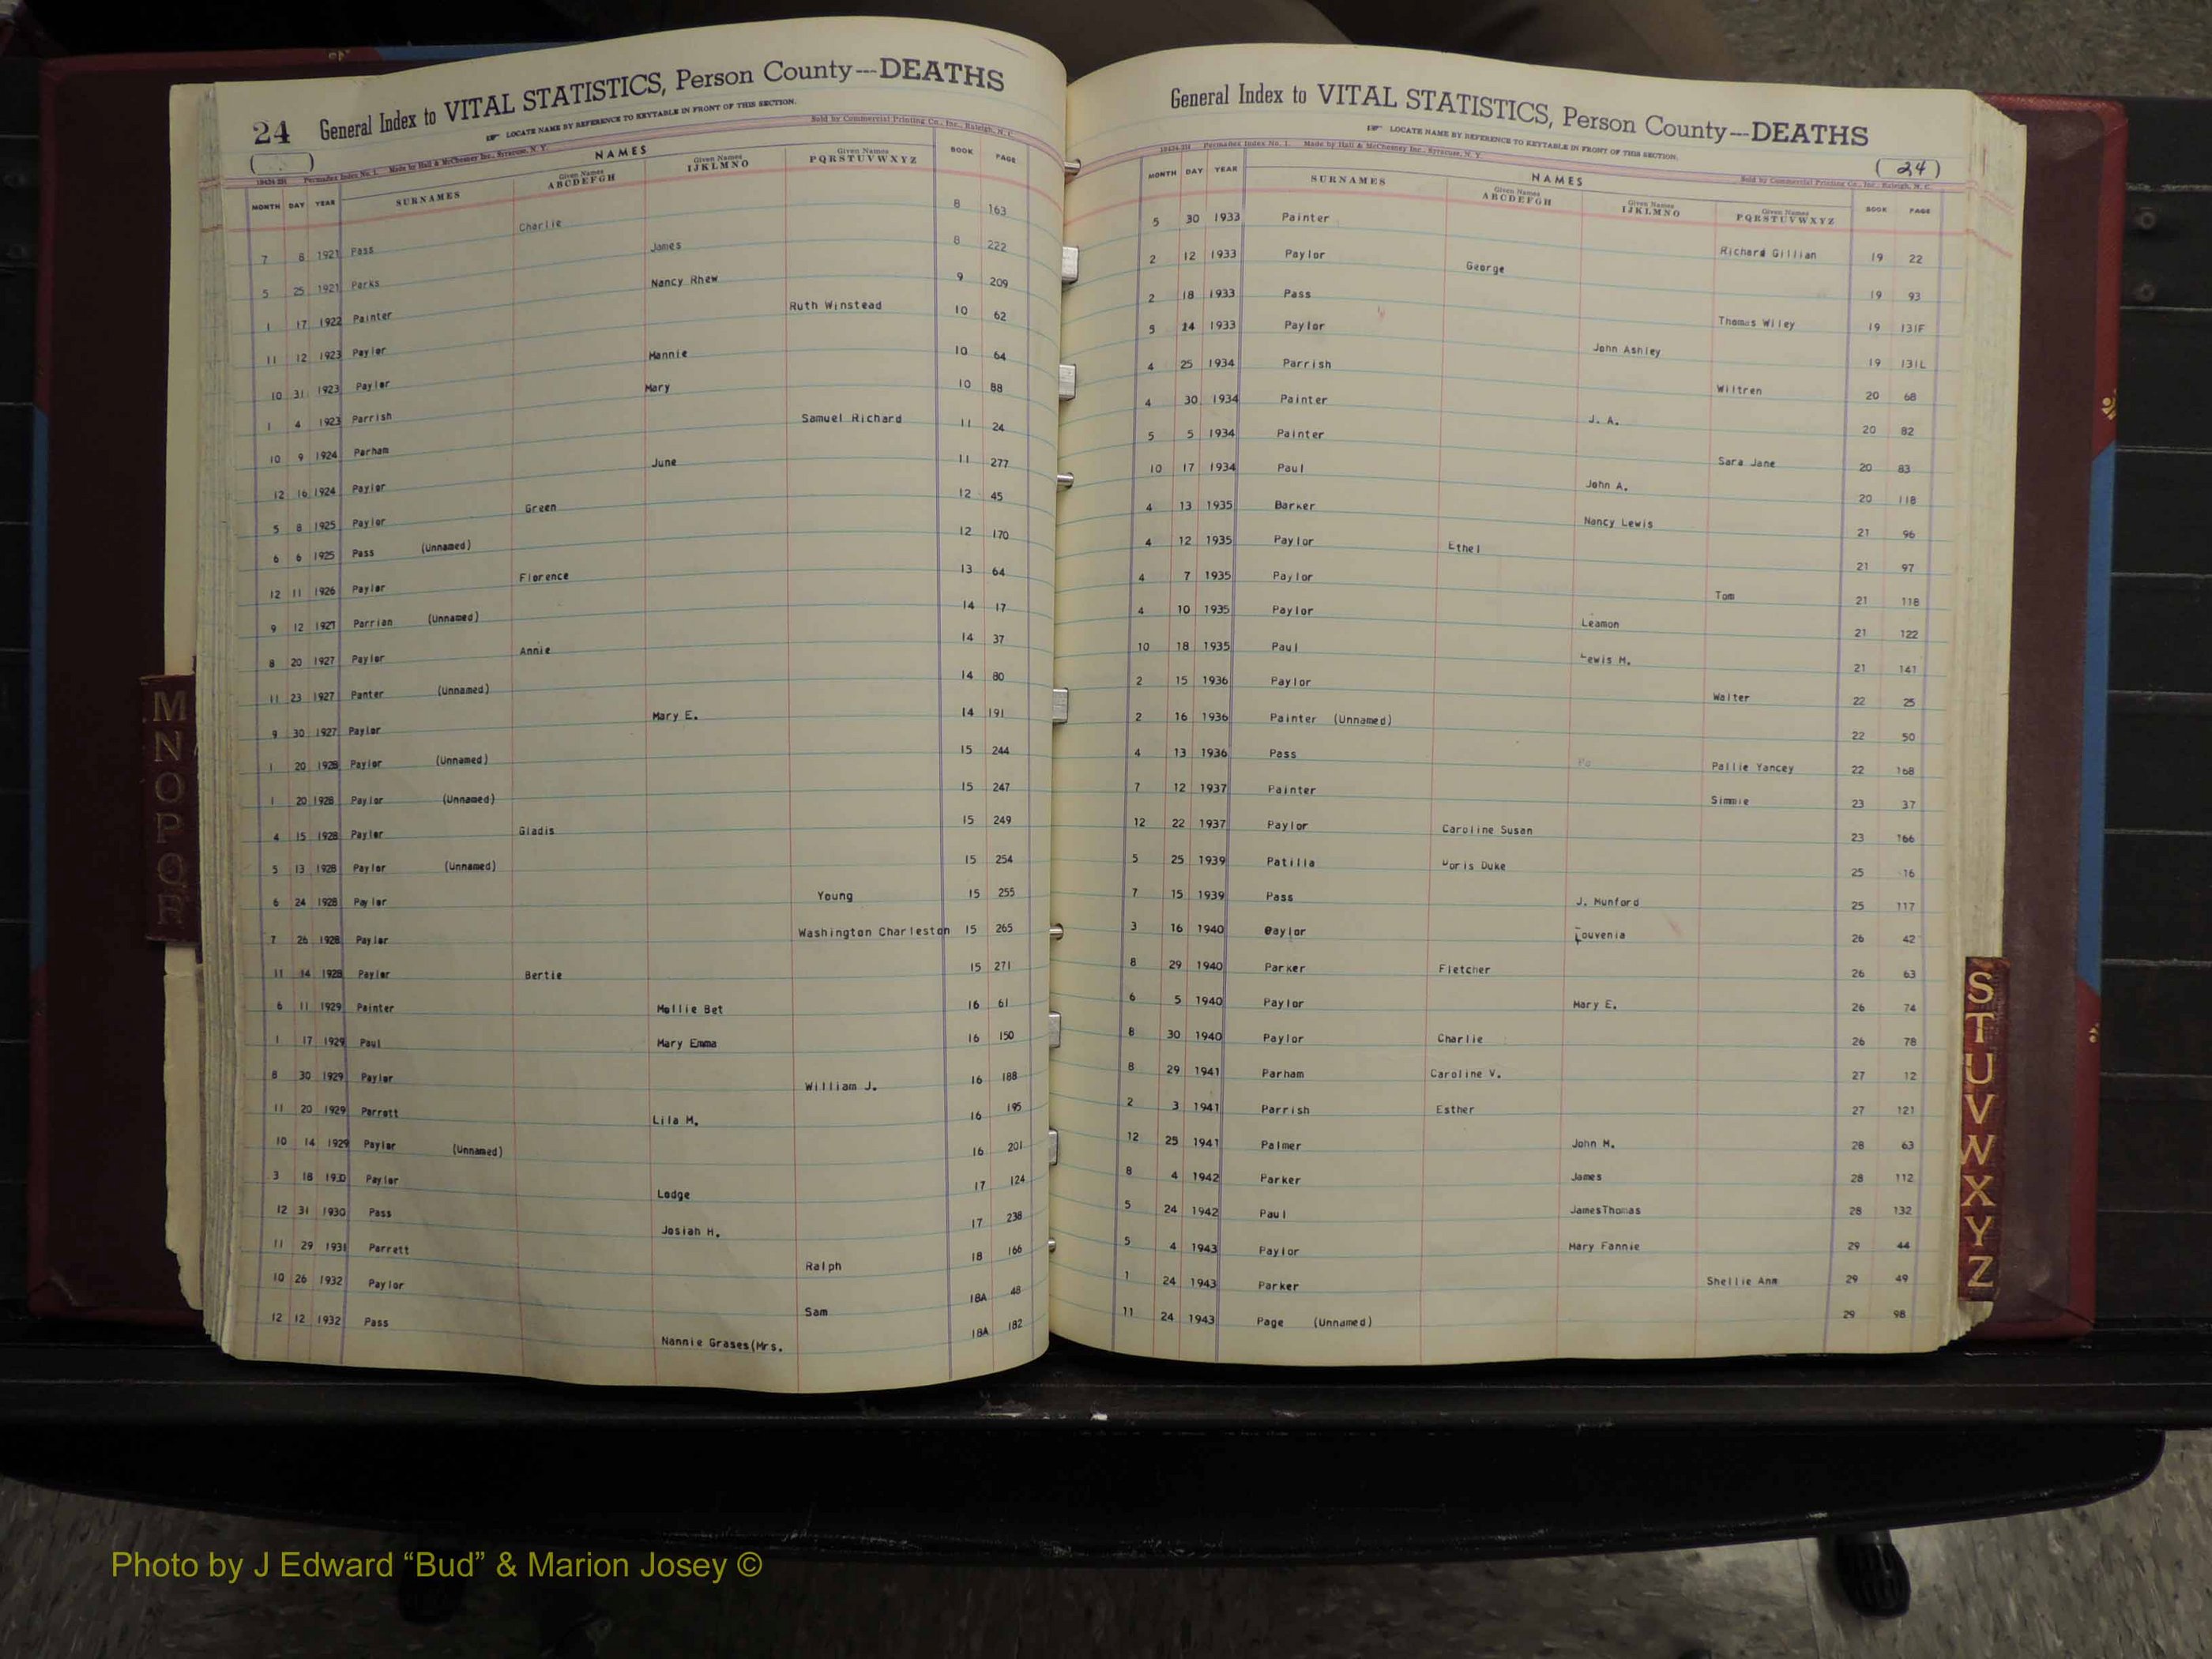 24 General Index to VITAL STATISTICS, Person County---DEATHS
LOCATE NAME BY REFERENCE TO KEYTABLE IN FRONT OF THIS SECTION.
Permadex Index No. 1. Made by Hall & McChesney Inc., Syracuse, N. Y. Sold by Commercial Printing Co., Inc., Raleigh, N. C.
NAMES
MONTH DAY YEAR SURNAMES Given Names ABCDEFGH Given Names IJKLMNO Given Names PQRSTUVWXYZ BOOK PAGE
7 8 1921 Pass Charlie 8 163
5 25 1921 Parks James 8 222
1 17 1922 Painter Nancy Rhew 9 209
11 12 1923 Paylor Ruth Winstead 10 62
10 31 1923 Paylor Mannie 10 64
1 4 1923 Parrish Mary 10 88
10 9 1924 Parham Samuel Richard 11 24
12 16 1924 Paylor June 11 277
5 8 1925 Paylor Green 12 45
6 6 1925 Pass (Unnamed) 12 170
12 11 1926 Paylor Florence 13 64
9 12 1927 Parrian (Unnamed) 14 17
8 20 1927 Paylor Annie 14 37
11 23 1927 Panter (Unnamed) 14 80
9 30 1927 Paylor Mary E. 14 191
1 20 1928 Paylor (Unnamed) 15 244
1 20 1928 Paylor (Unnamed) 15 247
4 15 1928 Paylor Gladis 15 249
5 13 1928 Paylor (Unnamed) 15 254
6 24 1928 Paylor Young 15 255
7 26 1928 Paylor Washington Charleston 15 265
11 14 1928 Paylor Bertie 15 271
6 11 1929 Painter Mollie Bet 16 61
1 17 1929 Paul Mary Emma 16 150
8 30 1929 Paylor William J. 16 188
11 20 1929 Parrott Lila M. 16 195
10 14 1929 Paylor (Unnamed) 16 201
3 18 1930 Paylor Lodge 17 124
12 31 1930 Pass Josiah H. 17 238
11 29 1931 Parrett Ralph 18 166
10 26 1932 Paylor Sam 18A 48
12 12 1932 Pass Nannie Grases(Mrs. 18A 182
M
N
O
P
Q
R
General Index to VITAL STATISTICS, Person County---DEATHS
LOCATE NAME BY REFERENCE TO KEYTABLE IN FRONT OF THIS SECTION.
(24)
Permadex Index No. 1. Made by Hall & McChesney Inc., Syracuse, N. Y. Sold by Commercial Printing Co., Inc., Raleigh, N. C.
NAMES
MONTH DAY YEAR SURNAMES Given Names ABCDEFGH Given Names IJKLMNO Given Names PQRSTUVWXYZ BOOK PAGE
5 30 1933 Painter Richard Gillian 19 22
2 12 1933 Paylor George 19 93
2 18 1933 Pass Thomas Wiley 19 131F
5 24 1933 Paylor John Ashley 19 131L
4 25 1934 Parrish Wiltren 20 68
4 30 1934 Painter J. A. 20 82
5 5 1934 Painter Sara Jane 20 83
10 17 1934 Paul John A. 20 118
4 13 1935 Barker Nancy Lewis 21 96
4 12 1935 Paylor Ethel 21 97
4 7 1935 Paylor Tom 21 118
4 10 1935 Paylor Leamon 21 122
10 18 1935 Paul Lewis M. 21 141
2 15 1936 Paylor Walter 22 25
2 16 1936 Painter (Unnamed) 22 50
4 13 1936 Pass Pallie Yancey 22 168
7 12 1937 Painter Simmie 23 37
12 22 1937 Paylor Caroline Susan 23 166
5 25 1939 Patilla Doris Duke 25 16
7 15 1939 Pass J. Munford 25 117
3 16 1940 Paylor Louvenia 26 42
8 29 1940 Parker Fletcher 26 63
6 5 1940 Paylor Mary E. 26 74
8 30 1940 Paylor Charlie 26 78
8 29 1941 Parham Caroline V. 27 12
2 3 1941 Parrish Esther 27 121
12 25 1941 Palmer John M. 28 63
8 4 1942 Parker James 28 112
5 24 1942 Paul JamesThomas 28 132
5 4 1943 Paylor Mary Fannie 29 44
1 24 1943 Parker Shellie Ann 29 49
11 24 1943 Page (Unnamed) 29 98
S
T
U
V
W
X
Y
Z
Photo by J Edward “Bud” & Marion Josey ©